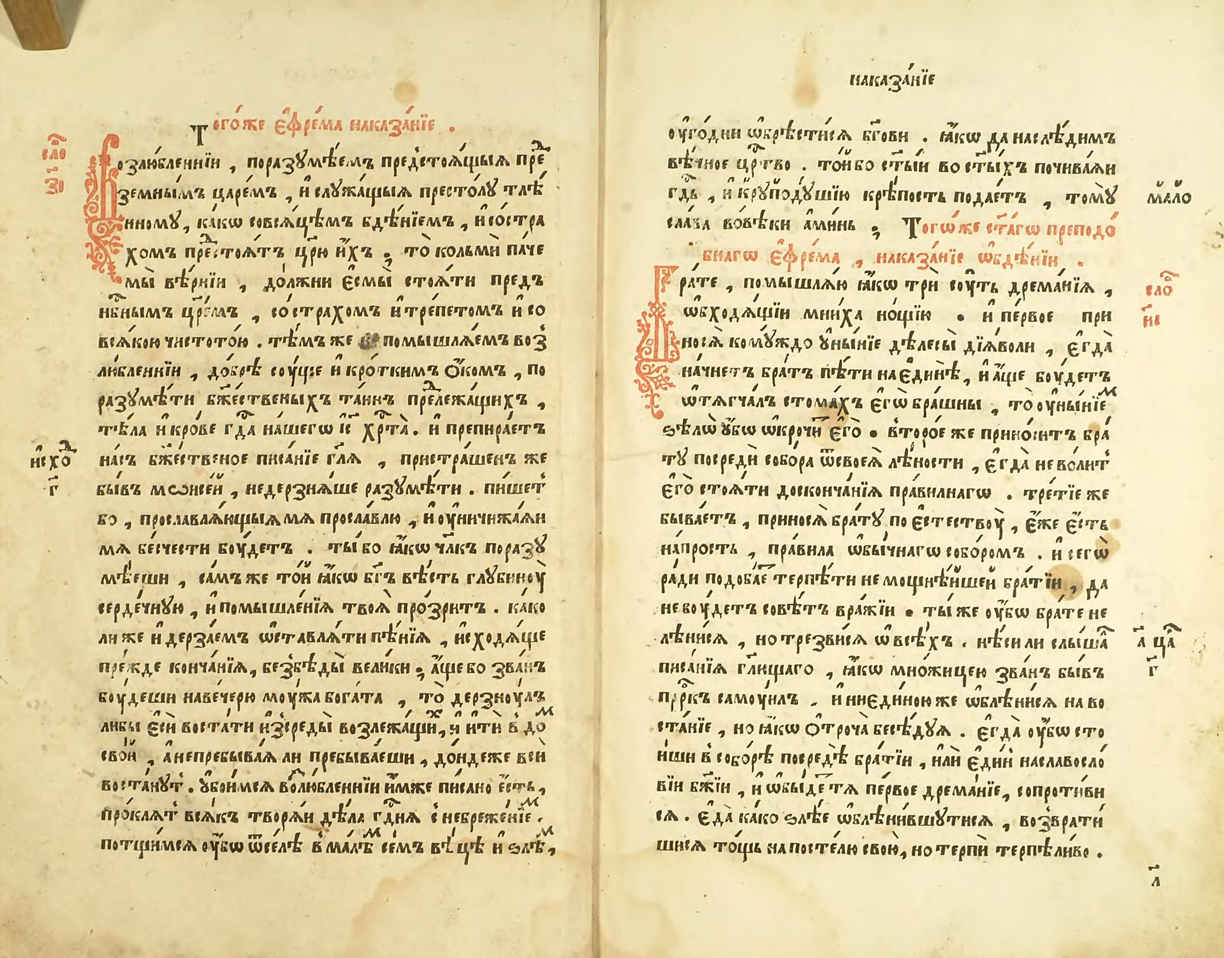 Того́же є҆фре́ма наказа́нїе .
сло
з҃і
Возлю́бленнїи , поразумѣ́емъ предстоѧ́щыѧ пре
земны́мъ царе́мъ , и҆ слꙋжа́щыѧ престо́лꙋ тлѣ́
нномꙋ , ка́кѡ совсѧ́цѣмъ бдѣ́нїемъ , и҆ со стра
хомъ престоѧ́тъ цр҃ю и҆́хъ ; то̀ кольмѝ па́че
мы̀ вѣ́рнїи , до́лжни є҆смы̀ стоѧ́ти предъ
нб҃нымъ цр҃е́мъ , со стра́хомъ и҆ тре́петомъ и҆ со
всѧ́кою чистото́ю . тѣ́мъ же помышлѧ́емъ воз
лю́бленнїи , до́брѣ сꙋ́ще и҆ кро́ткимъ ѻ҆́комъ , по
разꙋмѣ́ти бж҃е́ственыхъ та́инъ прележа́щихъ ,
тѣ́ла и҆ кро́ве гдⷭ҇а на́шегѡ і҆с҃ хрⷭ҇та̀ . и҆ препира́етъ
исхо
г҃
на́съ бж҃е́ственое писа́нїе гл҃ѧ , пристра́шенъ же
бы́въ мѡѷсе́й , недерзнѧ́ше разꙋмѣ́ти . пи́шет
бо , прославлѧ́ющыѧ мѧ просла́влю , и҆ оу҆ничижа́ѧи
мѧ бесче́сти бꙋ́детъ . ты́ бо ꙗ҆́кѡ чл҃къ поразꙋ
мѣ́еши , са́мъ же то́й ꙗ҆́кѡ бг҃ъ вѣ́сть глꙋбинꙋ̀
серде́чнꙋю , и҆ помышле́нїѧ твоѧ̀ про́зритъ . ка́ко
ли же и҆ дерза́емъ ѡ҆ставлѧ́ти пѣ́нїѧ , и҆сходѧ́ще
пре́жде конча́нїѧ , без̾ бѣды̀ вели́ки ; а҆́ще бо зва́нъ
бꙋ́деши на ве́черю мꙋ́жа бога́та , то̀ дерзнꙋ́лъ
либы є҆сѝ воста́ти и҆зсреды̀ возлежа́щих , и҆ и҆тѝ в до
сво́й , а҆ не пребыва́ѧ ли пребыва́еши , до́ндеже всѝ
воста́нꙋт . ᲂу҆бои́мсѧ во́злю́бленнїи и҆́мже пи́сано є҆́сть ,
про́клѧт всѧ́къ творѧ́и дѣ́ла гдⷭ҇нѧ с небреже́нїем .
потщи́мсѧ оу҆́бѡ ѿсе́лѣ в ма́лѣм се́мъ вѣ́цѣ и҆ ѕлѣ ,
наказа́нїе
оу҆го́дни ѡ҆брѣ́стисѧ бг҃ови . ꙗ҆́кѡ да наслѣ́димъ
вѣ́чное црⷭ҇тво . то́й бо ст҃ы́й во ст҃ы́хъ почива́ѧи
гдⷭ҇ь , и҆ крꙋподꙋ́шїю крѣ́пость подае́тъ , томꙋ
мало
сла́ва во вѣ́ки а҆ми́нь ; Тогѡ́же ст҃а́гѡ преподо́
бнагѡ є҆фре́ма , наказа́нїе ѡ҆ бдѣ́нїи .
сло
и҃і
Бра́те , помышлѧ́ю ꙗ҆́кѡ трѝ сꙋ́ть дрема́нїѧ ,
ѡ҆бходѧ́щїи мни́ха но́щїю . и҆ пе́рвое при
носѧ̀ комꙋ́ждо ᲂу҆ны́нїе дѣ́лесы дїѧ́воли , є҆гда̀
начне́тъ бра́тъ пѣ́ти наєди́нѣ , и҆ а҆́ще бꙋ́детъ
ѡ҆тѧгча́лъ стома́хъ є҆гѡ̀ бра́шны , то оу҆ны́нїем
ѕѣлѡ̀ ᲂу҆́бѡ ѡ҆крочѝ є҆го̀ . второ́е же прино́ситъ бра́
тꙋ посредѝ собо́ра ѿ своеѧ̀ лѣ́ности , є҆гда̀ не во́лит
є҆го̀ стоѧ́ти до сконча́нїѧ пра́вилнагѡ . тре́тїе же
быва́етъ , приносѧ̀ бра́тꙋ по є҆стествꙋ̀ , є҆́же є҆́сть
на́прость , пра́вила ѡ҆бы́чнагѡ собо́ромъ . и҆ сегѡ̀
ра́ди подоба́ет терпѣ́ти немощнѣ́йшей бра́тїи , да
не бꙋ́детъ совѣ́тъ вра́жїи . ты́ же оу҆́бѡ бра́те не
лѣни́сѧ , но трезви́сѧ ѡ҆ всѣ́хъ . нѣ́си ли слы́ша
а҃ ца
г҃
писа́нїѧ гл҃ющаго , ꙗ҆́кѡ мно́жицею зва́нъ бы́въ
прⷪ҇ркъ самꙋ́илъ . и҆ ниєди́ною же ѡ҆блѣни́сѧ на во
ста́нїе , но ꙗ҆́кѡ ѻ҆троча̀ бесѣ́дꙋѧ . є҆гда̀ оу҆́бѡ сто
и́ши в собо́рѣ посредѣ̀ бра́тїи , и҆лѝ є҆ди́нъ на славосло́
вїи бж҃їи , и҆ ѡ҆бы́детѧ пе́рвое дрема́нїе , сопроти́ви
сѧ . є҆да̀ ка́ко ѕлѣ̀ ѡ҆блѣни́вшꙋтисѧ , возврати́
шисѧ то́щь на посте́лю свою̀ , но терпѝ терпѣли́во .
л҃